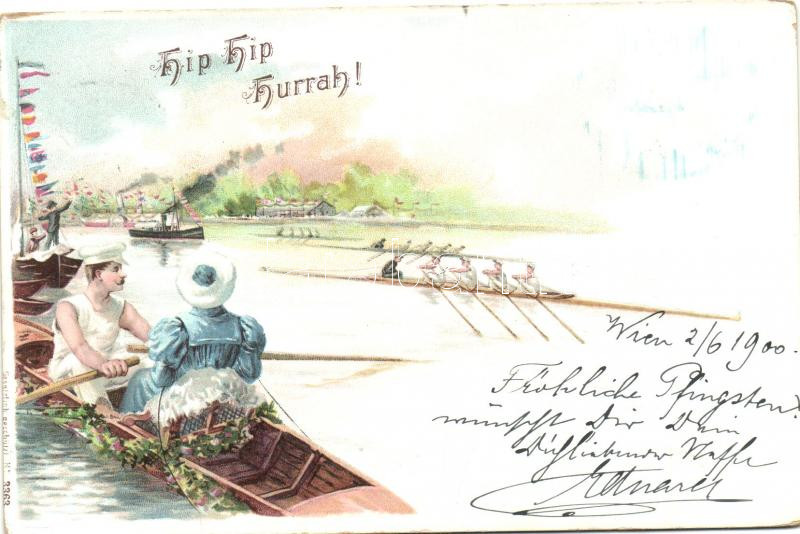 Hip Hip
Hurrah!
Wien 2/6 1900.
Fröhliche Pfingsten!
wünscht Dir Dein
Dichliebender Neffe
Gesetzlich geschützt No 3363